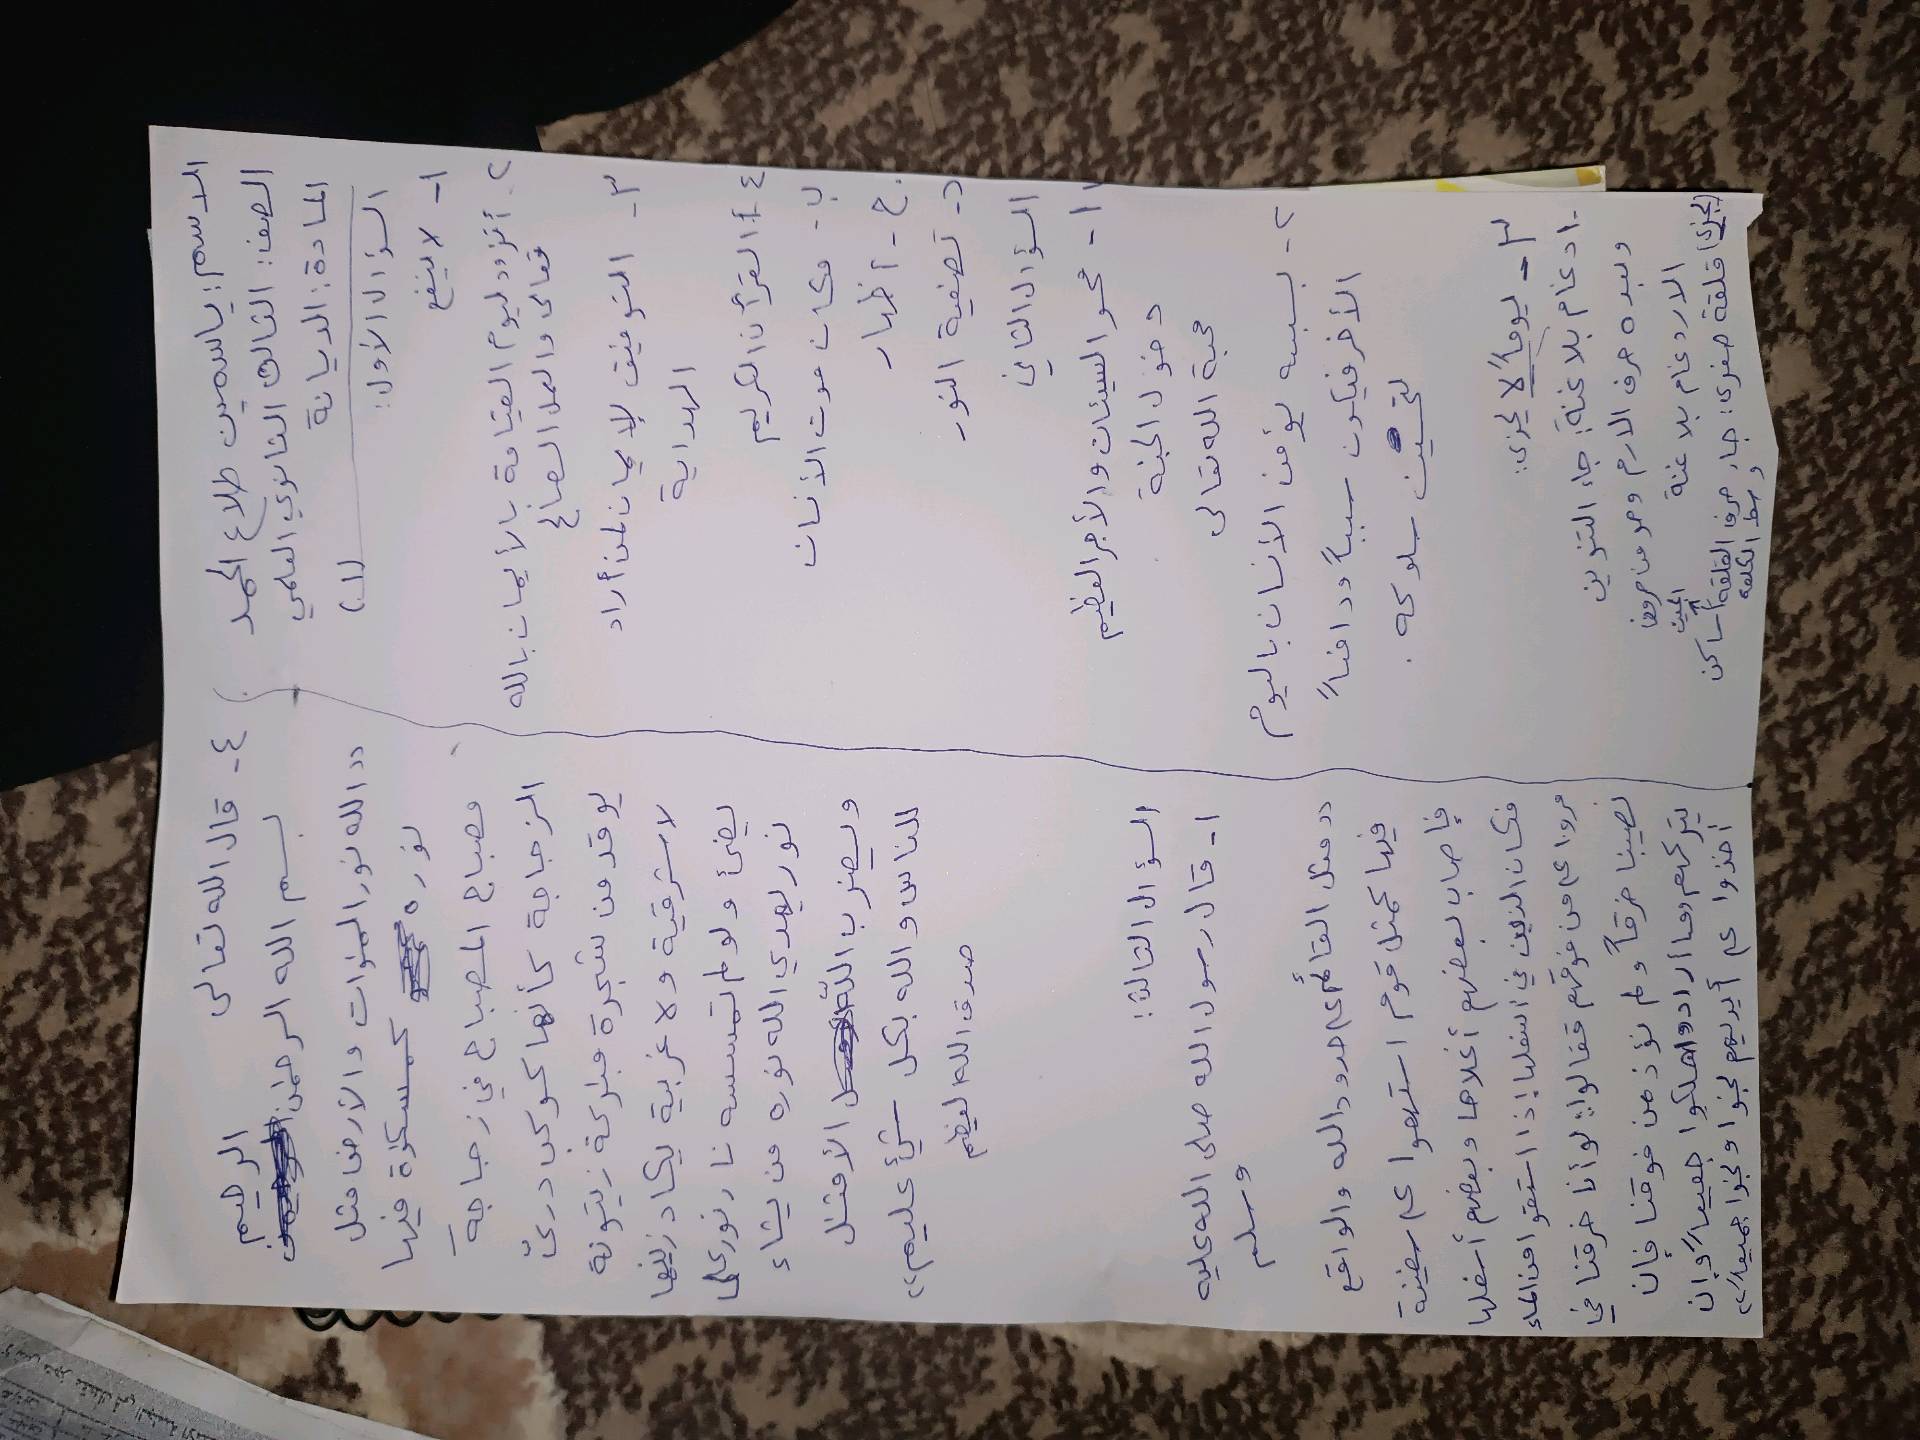 الاسم: ياسمين طلاع الحمد
الصف: الثالث الثانوي العلمي
المادة: الديانة
(١)
السؤال الأول:
١- لا ينفع
٢- أتزود ليوم القيامة بالأيمان بالله
تعالى والعمل الصالح
٣- التوفيق للإيمان لمن أراد
الهداية
٤- أ- القرأن الكريم
ب- مكان موت الأنسان
ج- اظهار
د- تصفية النور
السؤال الثاني
١- محو السيئات والأجر العظيم
دخول الجنة
محبة الله تعالى
٢- لسببه يؤمن الأنسان باليوم
الأخر فيكون سبباً ودافعاً
لتحسين سلوكه.
٣- يوماً لا يجزى:
١- ادغام بلا غنة: جاء التنوين
وبعده حرف الام وهو من حروف
الادغام بلا غنة
(يجزي) قلقلة صغرى: جاء حرف القلقة
الجيم ساكن
وسط الكلمة
٤- قال الله تعالى
بسم الله الرحمن
الرحيم
"الله نور السموات والأرض مثل
نوره كمسكاة فيها
مصباح المصباح في زجاجة
الزجاجة كأنها كوكب دريٌ
يوقد من شجرة مبركة زيتونة
لا شرقية ولا غربية يكاد زيتها
يضئ ولو لم تمسسه نار نور على
نور يهدي الله نوره من يشاء
ويضرب الله الأمثال
للناس والله بكل شئ عليم"
صدق الله لعظيم
السؤال الثالث:
١- قال رسول الله صلى الله عليه
وسلم
"مثل القائم على حدود الله والواقع
فيها كمثل قوم استهموا على سفينة
فإصاب بعضهم أعلاها وبعضهم أسفلها
فكان الذين في اسفلها إذا استقوا من الماء
مروا على من فوقهم فقالوا: لو أنا خرقنا في
نصيبنا خرقاً ولم نؤذ من فوقنا فإن
يتركهم وما أرادوا هلكوا جميعاً وإن
اخذوا على أيديهم نجوا ونجوا جميعاً"